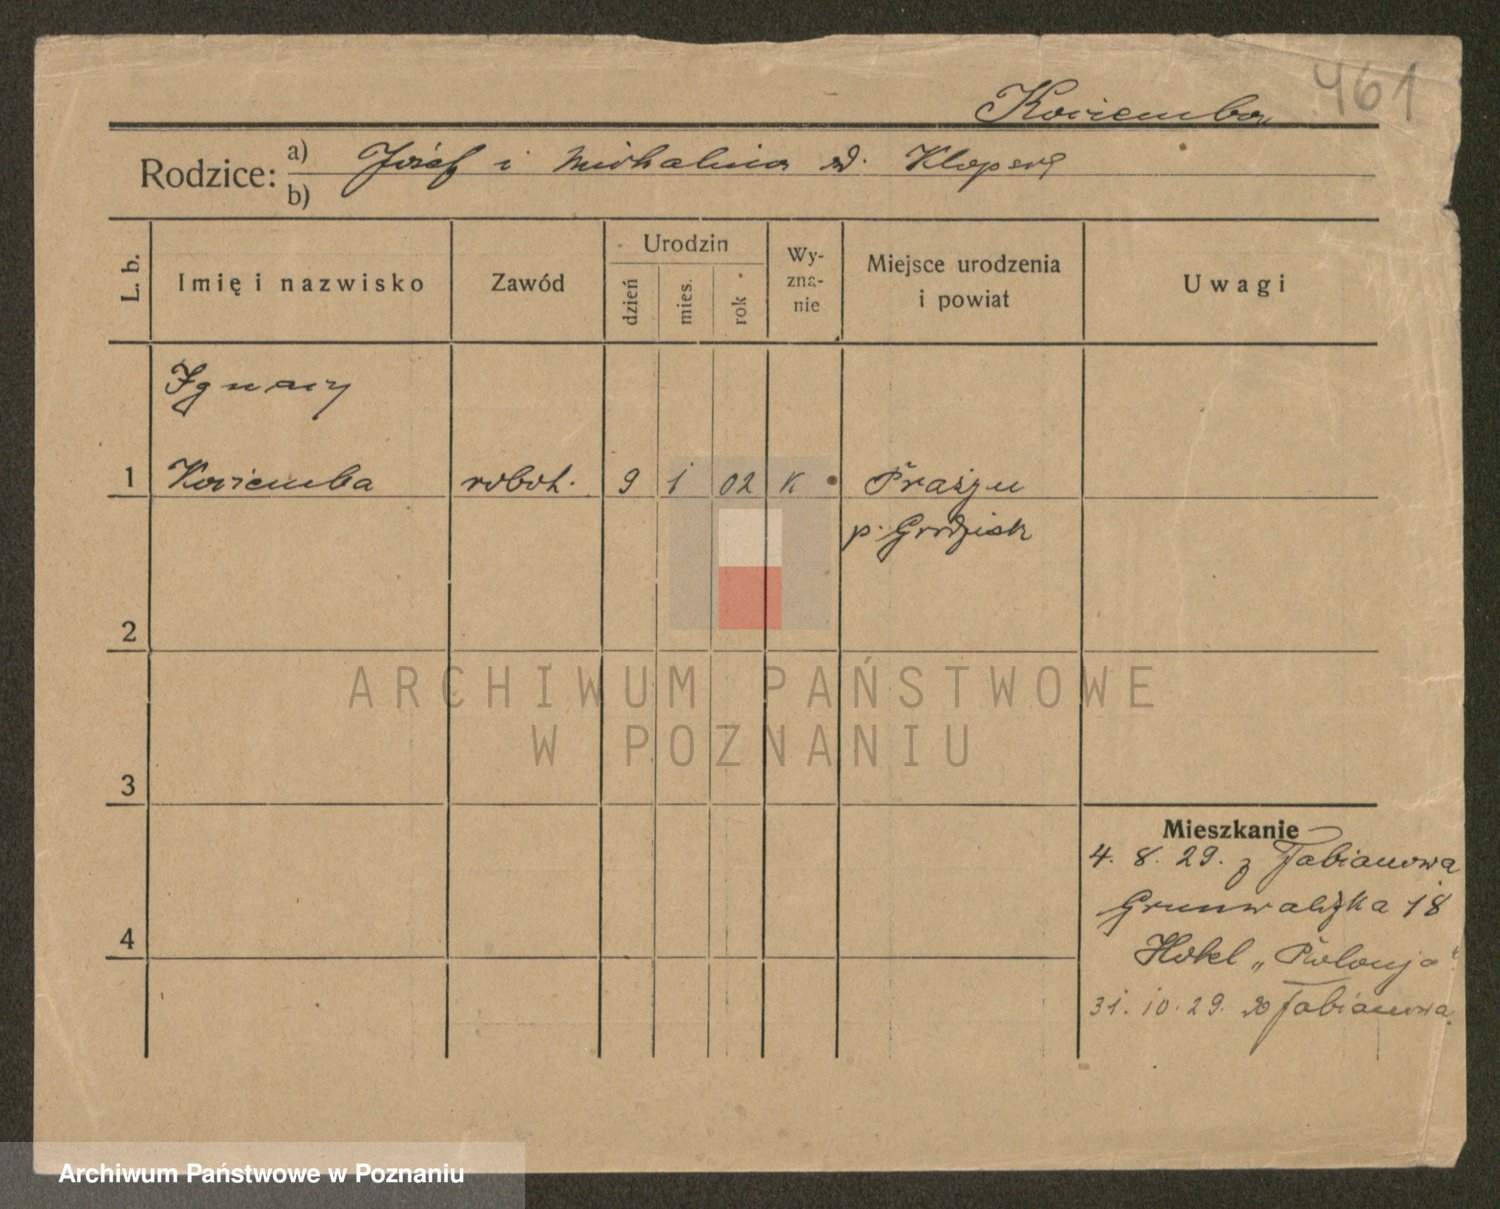 461
Kociemba
Rodzice: a) Józef i Michalina
b)
L. b.
Imię i nazwisko
Zawód
Urodzin
dzień
mies.
rok
Wy-
zna-
nie
Miejsce urodzenia
i powiat
Uwagi
Ignacy
1 Kociemba robot. 9 1 02 K
p. Grodzisk
2
3
4
Mieszkanie
4. 8. 29. z Fabianowa
Grunwaldzka 18
Hotel „Polonja"
31. 10. 29. do Fabianowa.
ARCHIWUM PAŃSTWOWE
W POZNANIU
Archiwum Państwowe w Poznaniu